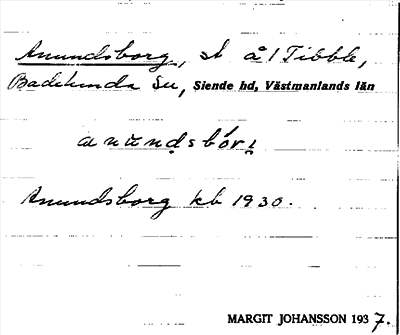 Anundsborg, st å/ Tibble,
Badelunda sn, Siende hd, Västmanlands län
Anundsborg kb 1930.
MARGIT JOHANSSON 1937.